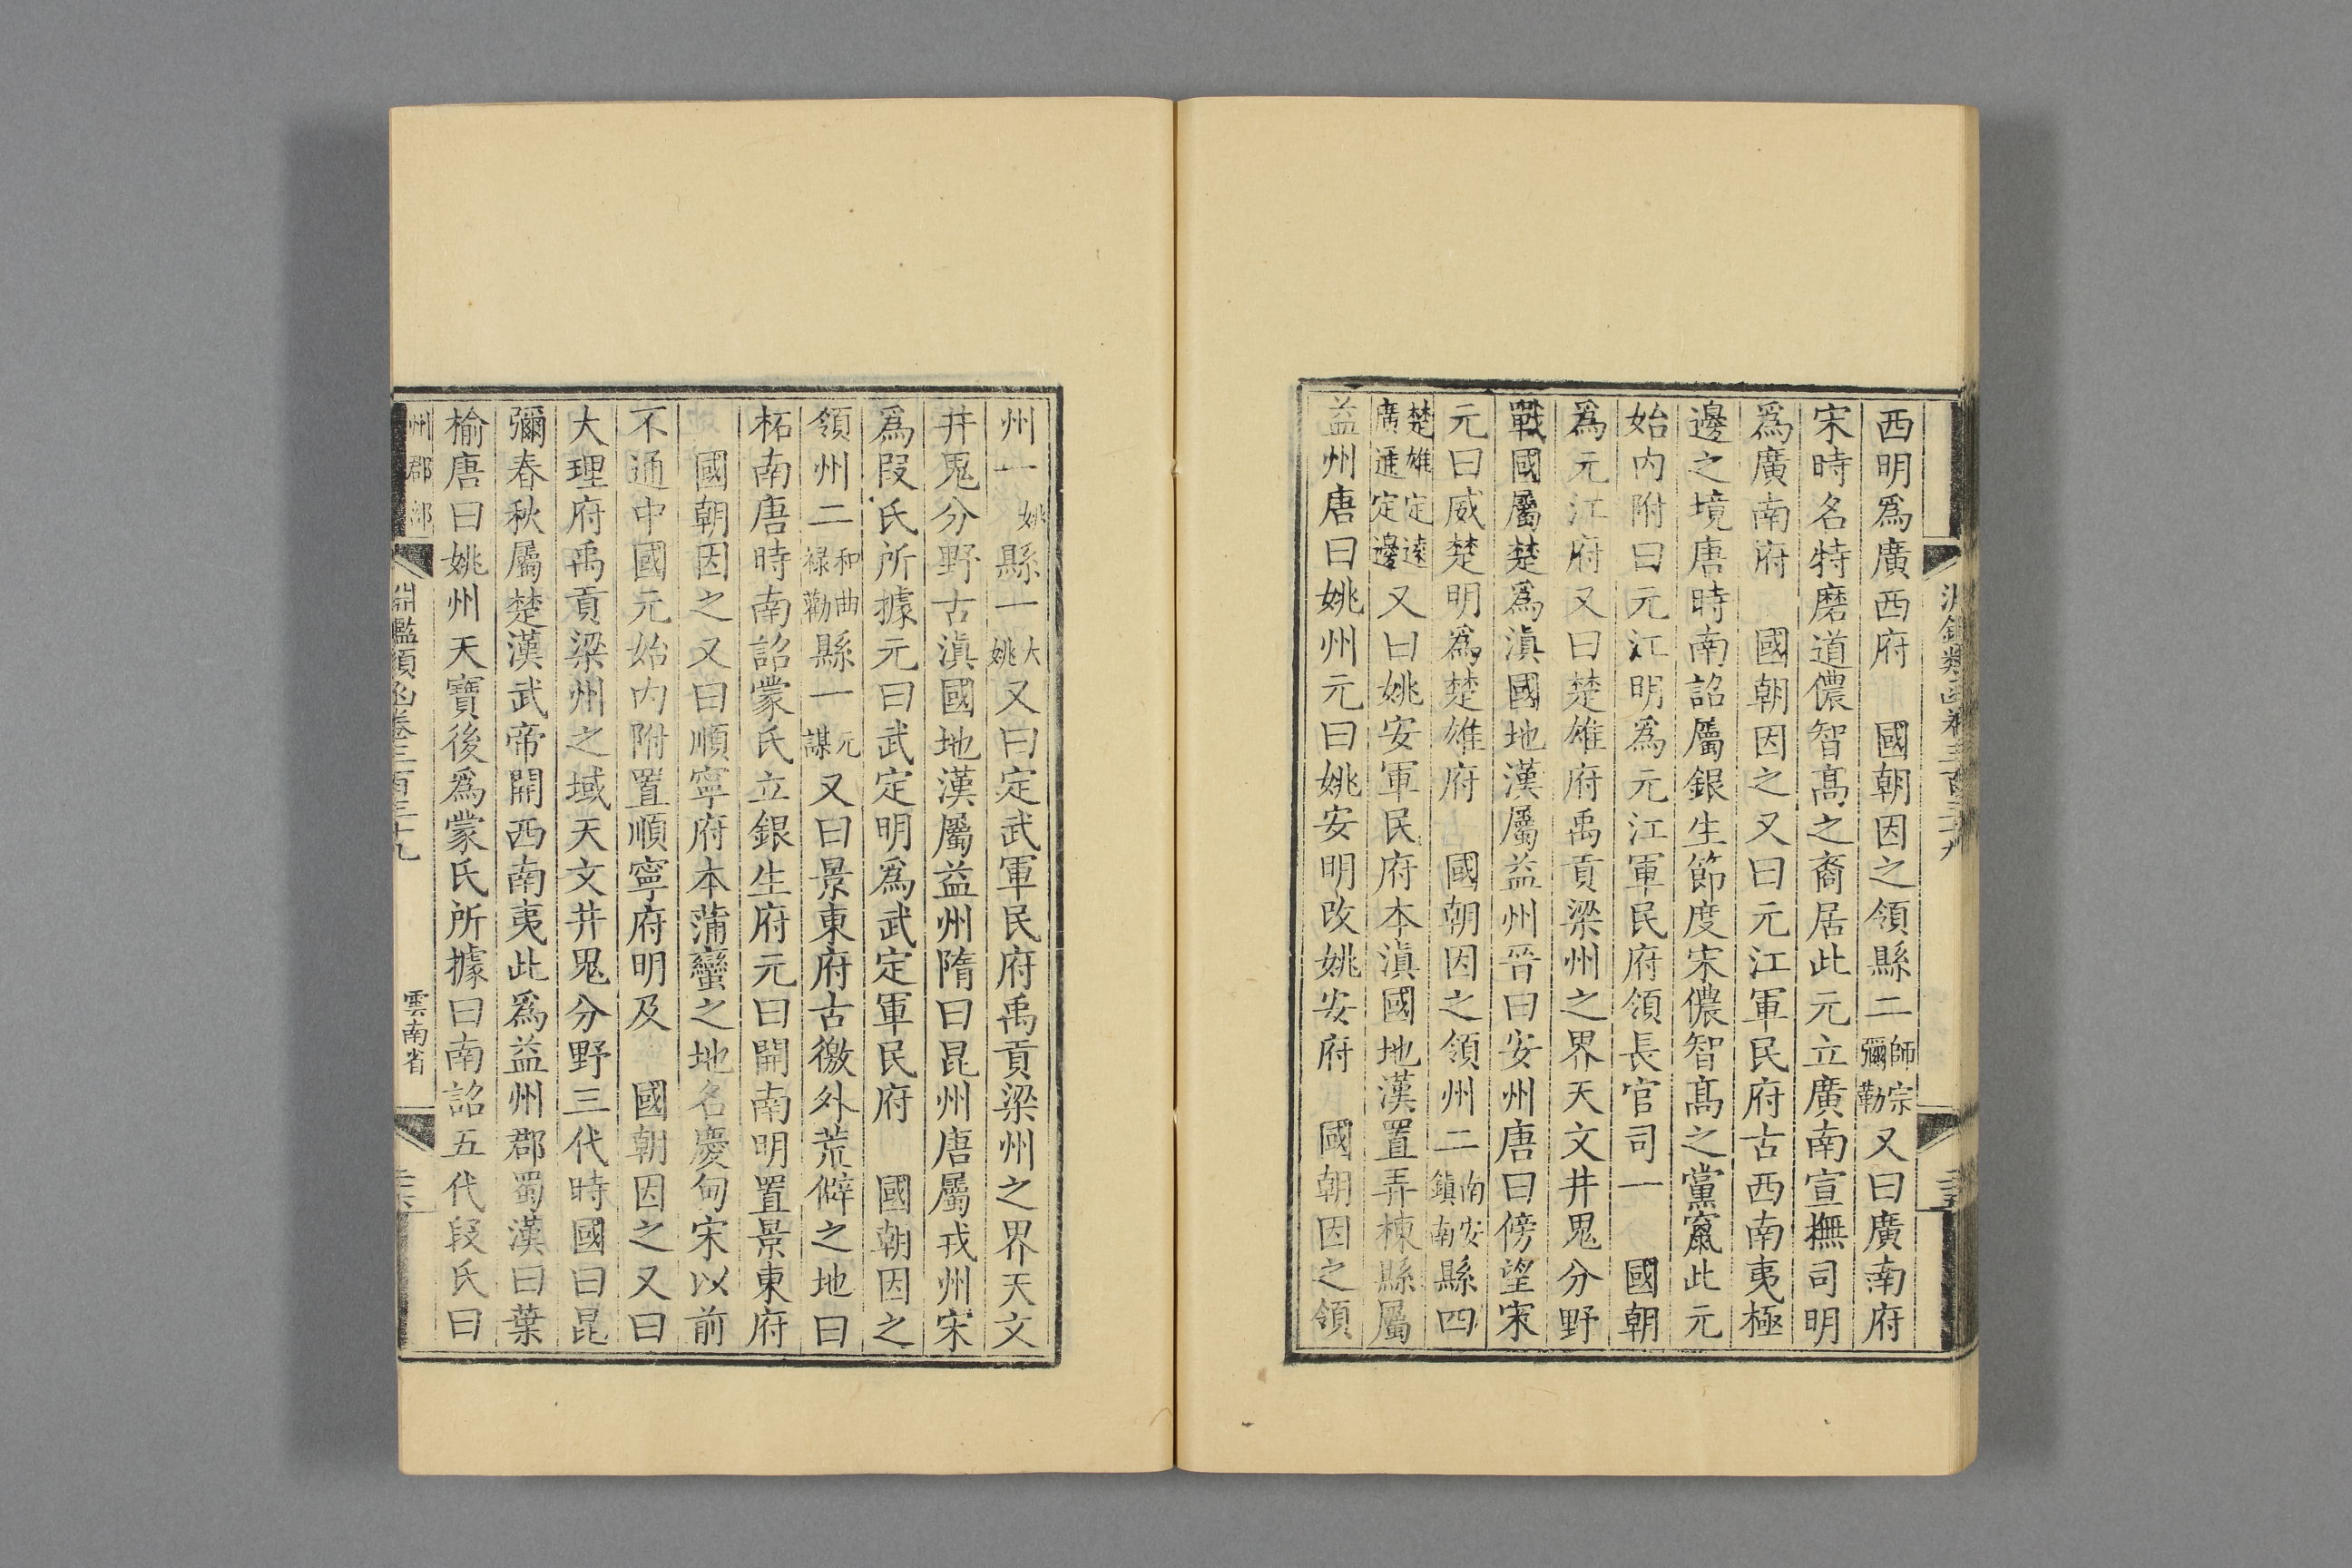 西明爲廣西府　國朝因之領縣二師宗彌勒又曰廣南府
宋時名特磨道儂智高之裔居此元立廣南宣撫司明
爲廣南府　國朝因之又曰元江軍民府古西南夷極
邊之境唐時南詔屬銀生節度宋儂智高之黨竄此元
始内附曰元江明爲元江軍民府領長官司一　國朝
爲元江府又曰楚雄府禹貢梁州之界天文井鬼分野
戰國屬楚爲滇國地漢屬益州晉曰安州唐曰傍望宋
元曰威楚明爲楚雄府　國朝因之領州二南安鎮南縣四
楚雄定遠廣通定邊又曰姚安軍民府本滇國地漢置弄棟縣屬
益州唐曰姚州元曰姚安明改姚安府　國朝因之領
州一姚縣一大姚又曰定武軍民府禹貢梁州之界天文
井鬼分野古滇國地漢屬益州隋曰昆州唐屬戎州宋
爲段氏所據元曰武定明爲武定軍民府　國朝因之
領州二和曲祿勸縣一元謀又曰景東府古徼外荒僻之地曰
柘南唐時南詔蒙氏立銀生府元曰開南明置景東府
國朝因之又曰順寧府本蒲蠻之地名慶甸宋以前
不通中國元始内附置順寧府明及　國朝因之又曰
大理府禹貢梁州之域天文井鬼分野三代時國曰昆
彌春秋屬楚漢武帝開西南夷此爲益州郡蜀漢曰葉
榆唐曰姚州天寶後爲蒙氏所據曰南詔五代段氏曰
州郡部
淵鑑類函卷三百三十九
雲南省